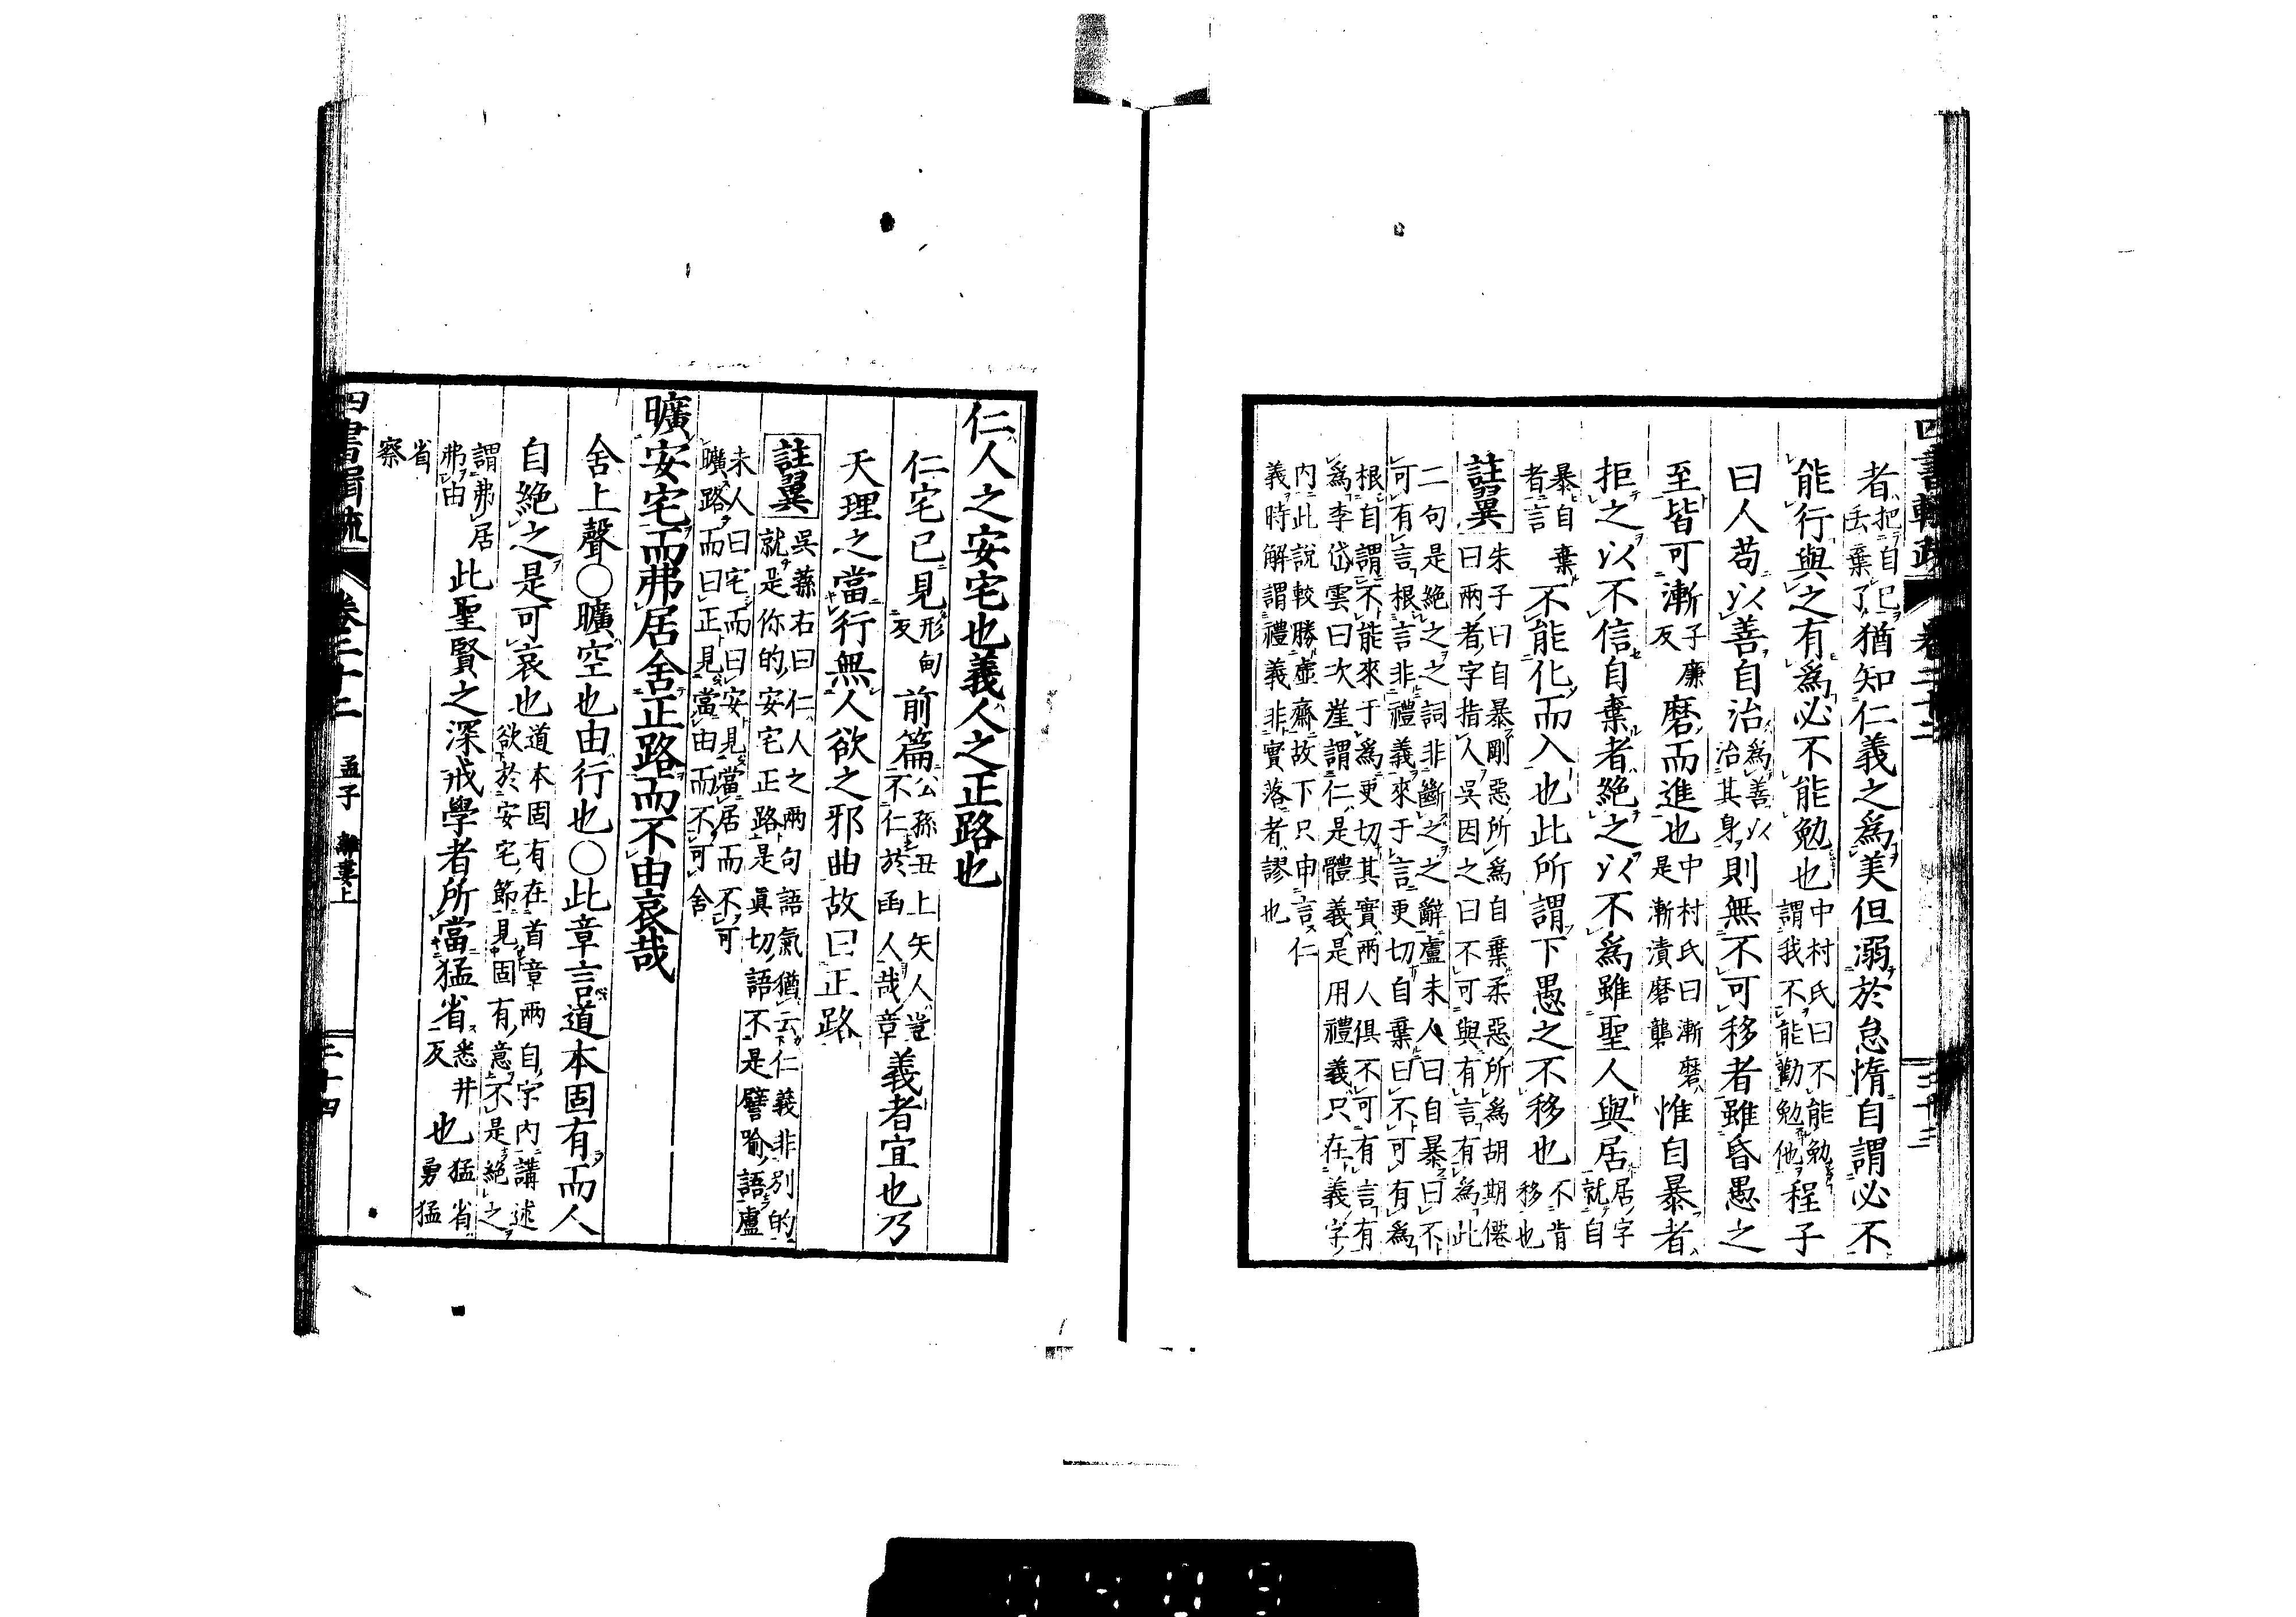 四書輯疏 卷二十二 二十三
者把自己丢棄了猶知仁義之爲美但溺於怠惰自謂必不
能行與之有爲必不能勉也中村氏曰不能勉謂我不能勸勉他程子
曰人苟以善自治爲善以治其身則無不可移者雖昏愚之
至皆可漸子廉反磨而進也中村氏曰漸磨是漸漬磨礱惟自暴者
拒之以不信自棄者絕之以不爲雖聖人與居居字就自
暴自棄者言不能化而入也此所謂下愚之不移也不肯移也
註翼朱子曰自暴剛惡所爲自棄柔惡所爲胡期僊曰兩者字指人吳因之曰不可與有言有爲此
二句是絕之之詞非斷之之辭盧未人曰自暴曰不可有言根言非禮義來于言更切自棄曰不可有爲
根自謂不能來于爲更切其實兩人俱不可有言有爲李岱雲曰次崖謂仁是體義是用禮義只在義字
內此說較勝虛齋故下只申言仁義時解謂禮義非實落者謬也
仁人之安宅也義人之正路也
仁宅已見形甸反前篇公孫丑上矢人豈不仁於函人哉章義者宜也乃
天理之當行無人欲之邪曲故曰正路
註翼吳蓀右曰仁人之兩句語氣猶云仁義非別的就是你的安宅正路是眞切語不是譬喻語盧
未人曰宅而曰安見當居而不可曠路而曰正見當由而不可舍
曠安宅而弗居舍正路而不由哀哉
舍上聲○曠空也由行也○此章言道本固有而人
自絕之是可哀也道本固有在首章兩自字內講述欲於安宅節見固有意不是絕之
謂弗居弗由此聖賢之深戒學者所當猛省悉井反也猛省勇猛
省察
四書輯疏 卷二十二 孟子 離婁上 二十四